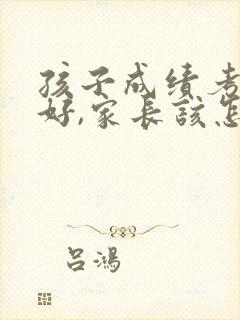 孩子成績考
好,家長該怎
吕鴻